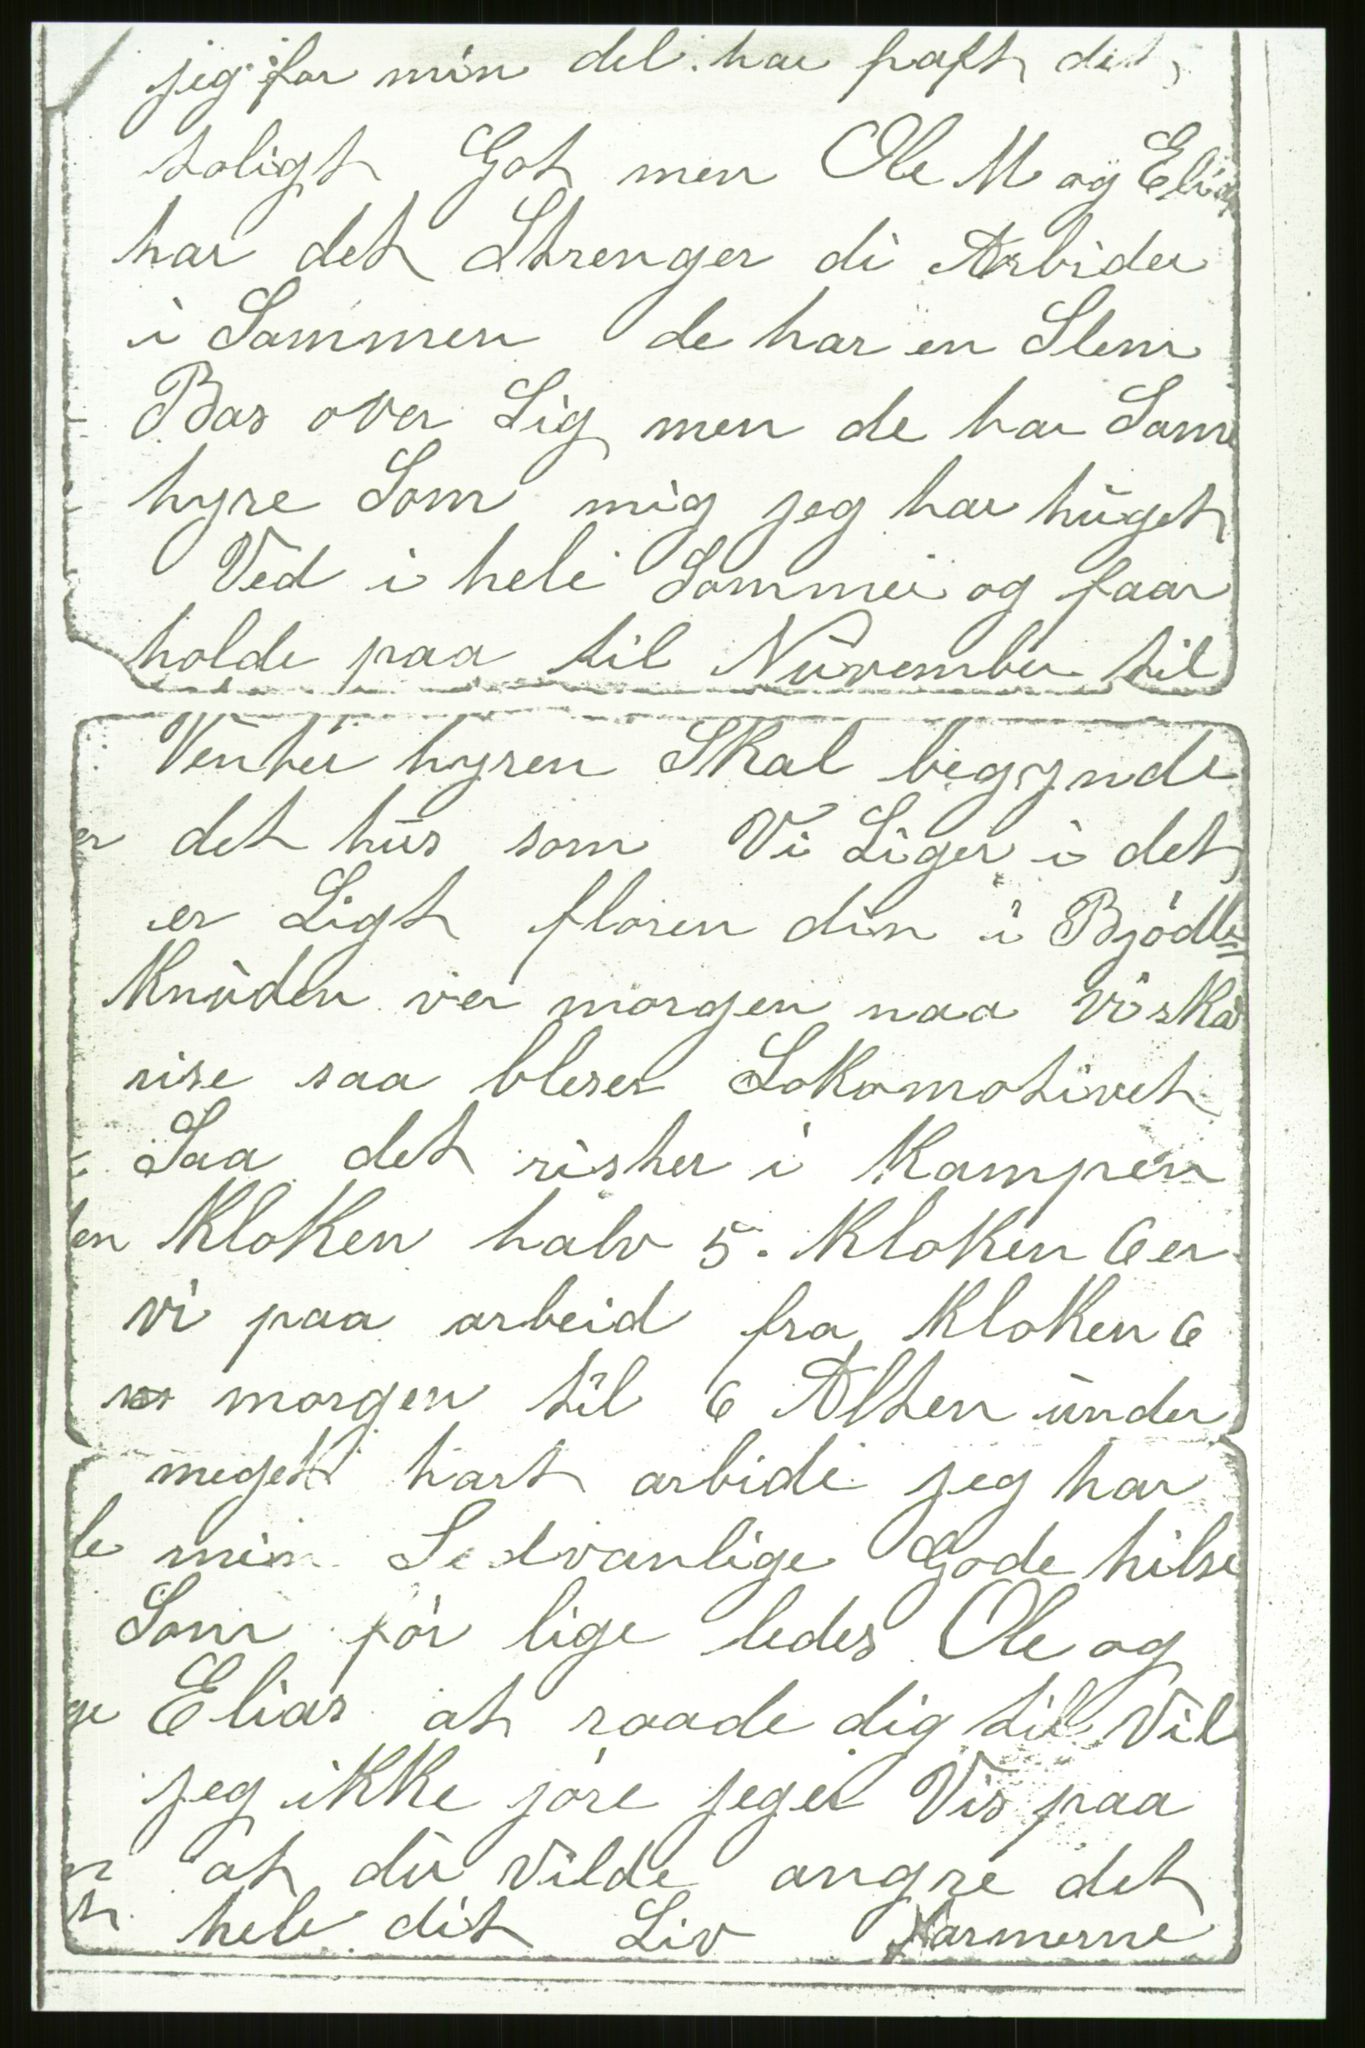 jeg for min del har haft det
toligt Got men Ole M og Elias
har det Strenger di Arbider
i Sammen de har en Slem
Bas over Sig men de har Same
hyre Som mig jeg har huget
Ved i hele Sommer og faar
holde paa til Nuvember til
Venter hyren Skal begynde
det hus som Vi Liger i det
er Ligt floren din i Bjödle
Knuden ver morgen naa vi skal
rise saa bleser Lokomotivet
Saa det rister i Kampen
Kloken halv 5. Kloken 6 er
vi paa arbeid fra Kloken 6
morgen til 6 Alten under
meget hart arbide jeg har
min Sedvanlige Gode hilse
Som för lige ledes Ole og
Elias at raade dig til Vil
jeg ikke jöre jeg er Vis paa
at du Vilde angre det
hele dit Liv Farmerne